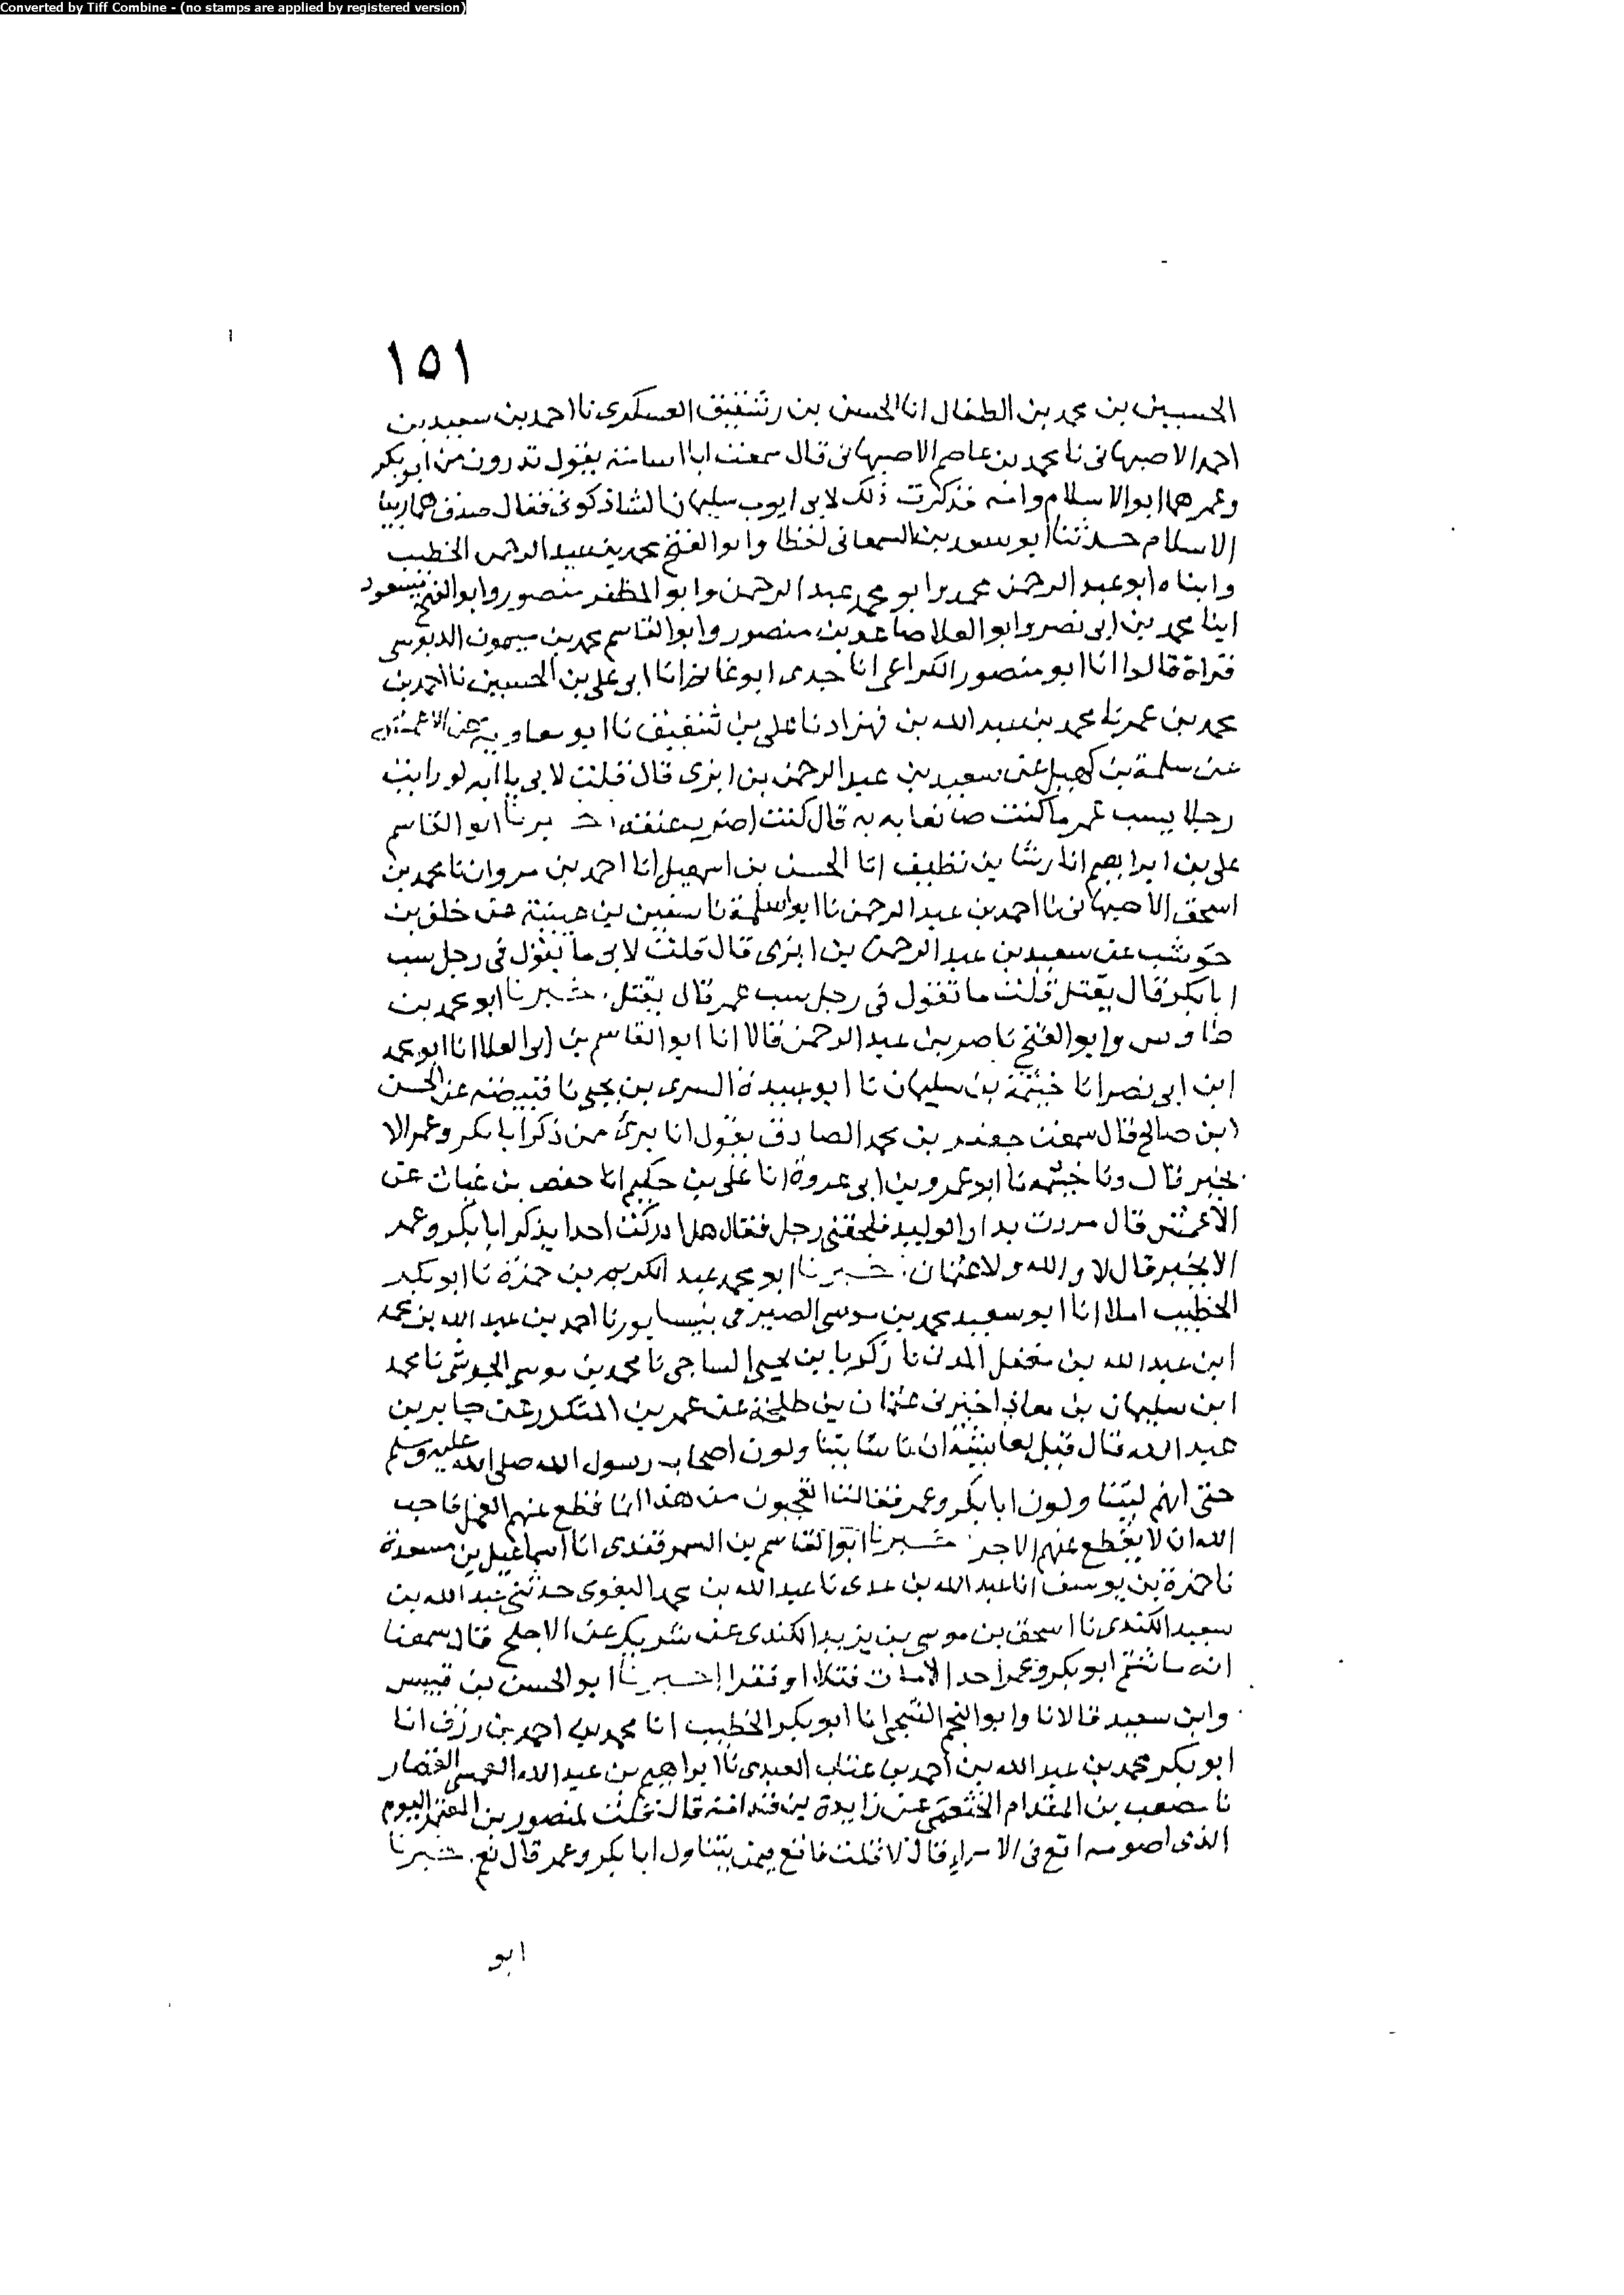 Converted by Tiff Combine - (no stamps are applied by registered version)
١٥١
الحسين بن محمد بن الطفال انا الحسن بن رشيق العسكري نا احمد بن سعيد بن
احمد الاصبهانى نا محمد بن عاصم الاصبهانى قال سمعت ابا اسامة يقول تدرون من ابو بكر
وعمر هما ابو الاسلام وامه فذكرت ذلك لابى ايوب سليمان الشاذكونى فقال صدق هما ربيا
الاسلام حدثنا ابو سعد بن السمعانى لفظا وابو الفتح محمد بن عبد الرحمن الخطيب
وابناه ابو عبد الرحمن محمد وابو محمد عبد الرحمن وابو المظفر منصور وابو الفتح مسعود
ابنا محمد بن ابى نصر وابو العلا صاعد بن منصور وابو القاسم محمد بن ميمون الدبوسى
قراة قالوا انا ابو منصور الكراعى انا جدى ابو غانم انا ابو على بن الحسين نا احمد بن
محمد بن عمر نا محمد بن عبد الله بن قهزاد نا على بن شقيق نا ابو معاوية عن الاعمش
عن سلمة بن كهيل عن سعيد بن عبد الرحمن بن ابزى قال قلت لابى يا ابه لو رايت
رجلا يسب عمر ما كنت صانعا به قال كنت اضرب عنقه اخبرنا ابو القاسم
على بن ابراهيم انا رشا بن نظيف انا الحسن بن اسمعيل انا احمد بن مروان نا محمد بن
اسحق الاصبهانى نا احمد بن عبد الرحمن نا ابو اسلمة نا سفين بن عيينة عن خلف بن
حوشب عن سعيد بن عبد الرحمن بن ابزى قال قلت لابى ما تقول فى رجل سب
ابا بكر قال يقتل قلت ما تقول فى رجل سب عمر قال يقتل. خبرنا ابو محمد بن
طاوس وابو الفتح ناصر بن عبد الرحمن قالا انا ابو القاسم بن ابى العلا انا ابو محمد
ابن ابى نصر انا خيثمة بن سليمان نا ابو عبيدة السرى بن يحيى نا قبيصه عن الحسن
ابن صالح قال سمعت جعفر بن محمد الصادق يقول انا برئ ممن ذكر ابا بكر وعمر الا
بخير قال ونا خيثمه نا ابو عمرو بن ابى عروة انا على بن حكيم انا حفص بن غياث عن
الاعمش قال مررت بدار الوليد فلحقنى رجل فقال هل ادركت احدا يذكر ابا بكر وعمر
الا بخير قال لا والله ولا عثمان: خبرنا ابو محمد عبد الكريم بن حمزة نا ابو بكر
الخطيب املا انا ابو سعيد محمد بن موسى الصيرفى بنيسابور نا احمد بن عبد الله بن محمد
ابن عبد الله بن مغفل المدنى نا زكريا بن يحيى الساجى نا محمد بن موسى الجرشى نا محمد
ابن سليمان بن معاذ اخبرنى عثمان بن طلحة عن محمد بن المنكدر عن جابر بن
عبد الله قال قيل لعايشة ان ناسا يتناولون اصحاب رسول الله صلى الله عليه وسلم
حتى انهم ليتناولون ابا بكر وعمر فقالت اتعجبون من هذا انما قطع عنهم العمل فاحب
الله ان لا يقطع عنهم الاجر: خبرنا ابو القاسم بن السمرقندى انا اسماعيل بن مسعدة
نا حمزة بن يوسف انا عبد الله بن عدى نا عبد الله بن محمد البغوى حدثنى عبد الله بن
سعيد الكندى نا اسحق بن موسى بن يزيد الكندى عن شريك عن الاجلح قال سمعنا
انه ما شتم ابو بكر وعمر احد الا مات قتلا او فقرا اخبرنا ابو الحسن بن قبيس
وابن سعيد قالا نا وابو النجم الشيحى انا ابو بكر الخطيب انا محمد بن احمد بن رزق انا
ابو بكر محمد بن عبد الله بن احمد بن عتاب العبدى نا ابراهيم بن عبد الله العبسى القصار
نا مصعب بن المقدام الخثعمى عن زايدة بن قدامة قال قلت لمنصور بن المعتمر اليوم
الذى اصومه اقع فى الامراء قال لا قلت فاقع بمن يتناول ابا بكر وعمر قال نعم. خبرنا
ابو